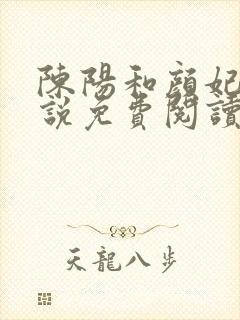 陳陽和顔妃
説免費閱讀
天龍八步